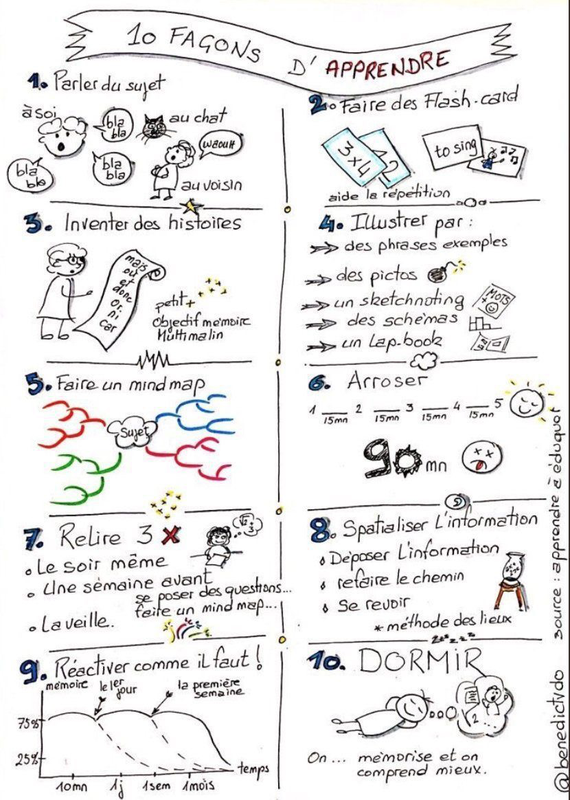 10 FAGONS D' APPRENDRE
1. Parler du sujet
à soi
bla bla
au chat
waouh
bla bla
bla bla
au voisin
2. Faire des Flash-card
3x4
12
to sing
aide la répétition
3. Inventer des histoires
mais
où
et
donc
or
ni
car
petit +
Objectif mémoire
Multimalin
4. Illustrer par :
des phrases exemples
des pictos
un sketchnoting
MOTS
des schémas
un Lap-book
5. Faire un mind map
Sujet
6. Arroser
1 15mn 2 15mn 3 15mn 4 15mn 5
90 mn
7. Relire 3 x
• Le soir même
• Une semaine avant
se poser des questions...
faire un mind map...
• La veille..
8. Spatialiser l'information
Déposer l'information
refaire le chemin
Se revoir
* méthode des lieux
9. Réactiver comme il faut !
mémoire
le 1er jour
la première semaine
75%
25%
temps
10mn 1j 1sem 1mois
zz zz zz
10. DORMIR
On ... mémorise et on
comprend mieux.
source : apprendre à éduquer
@benedictvdo